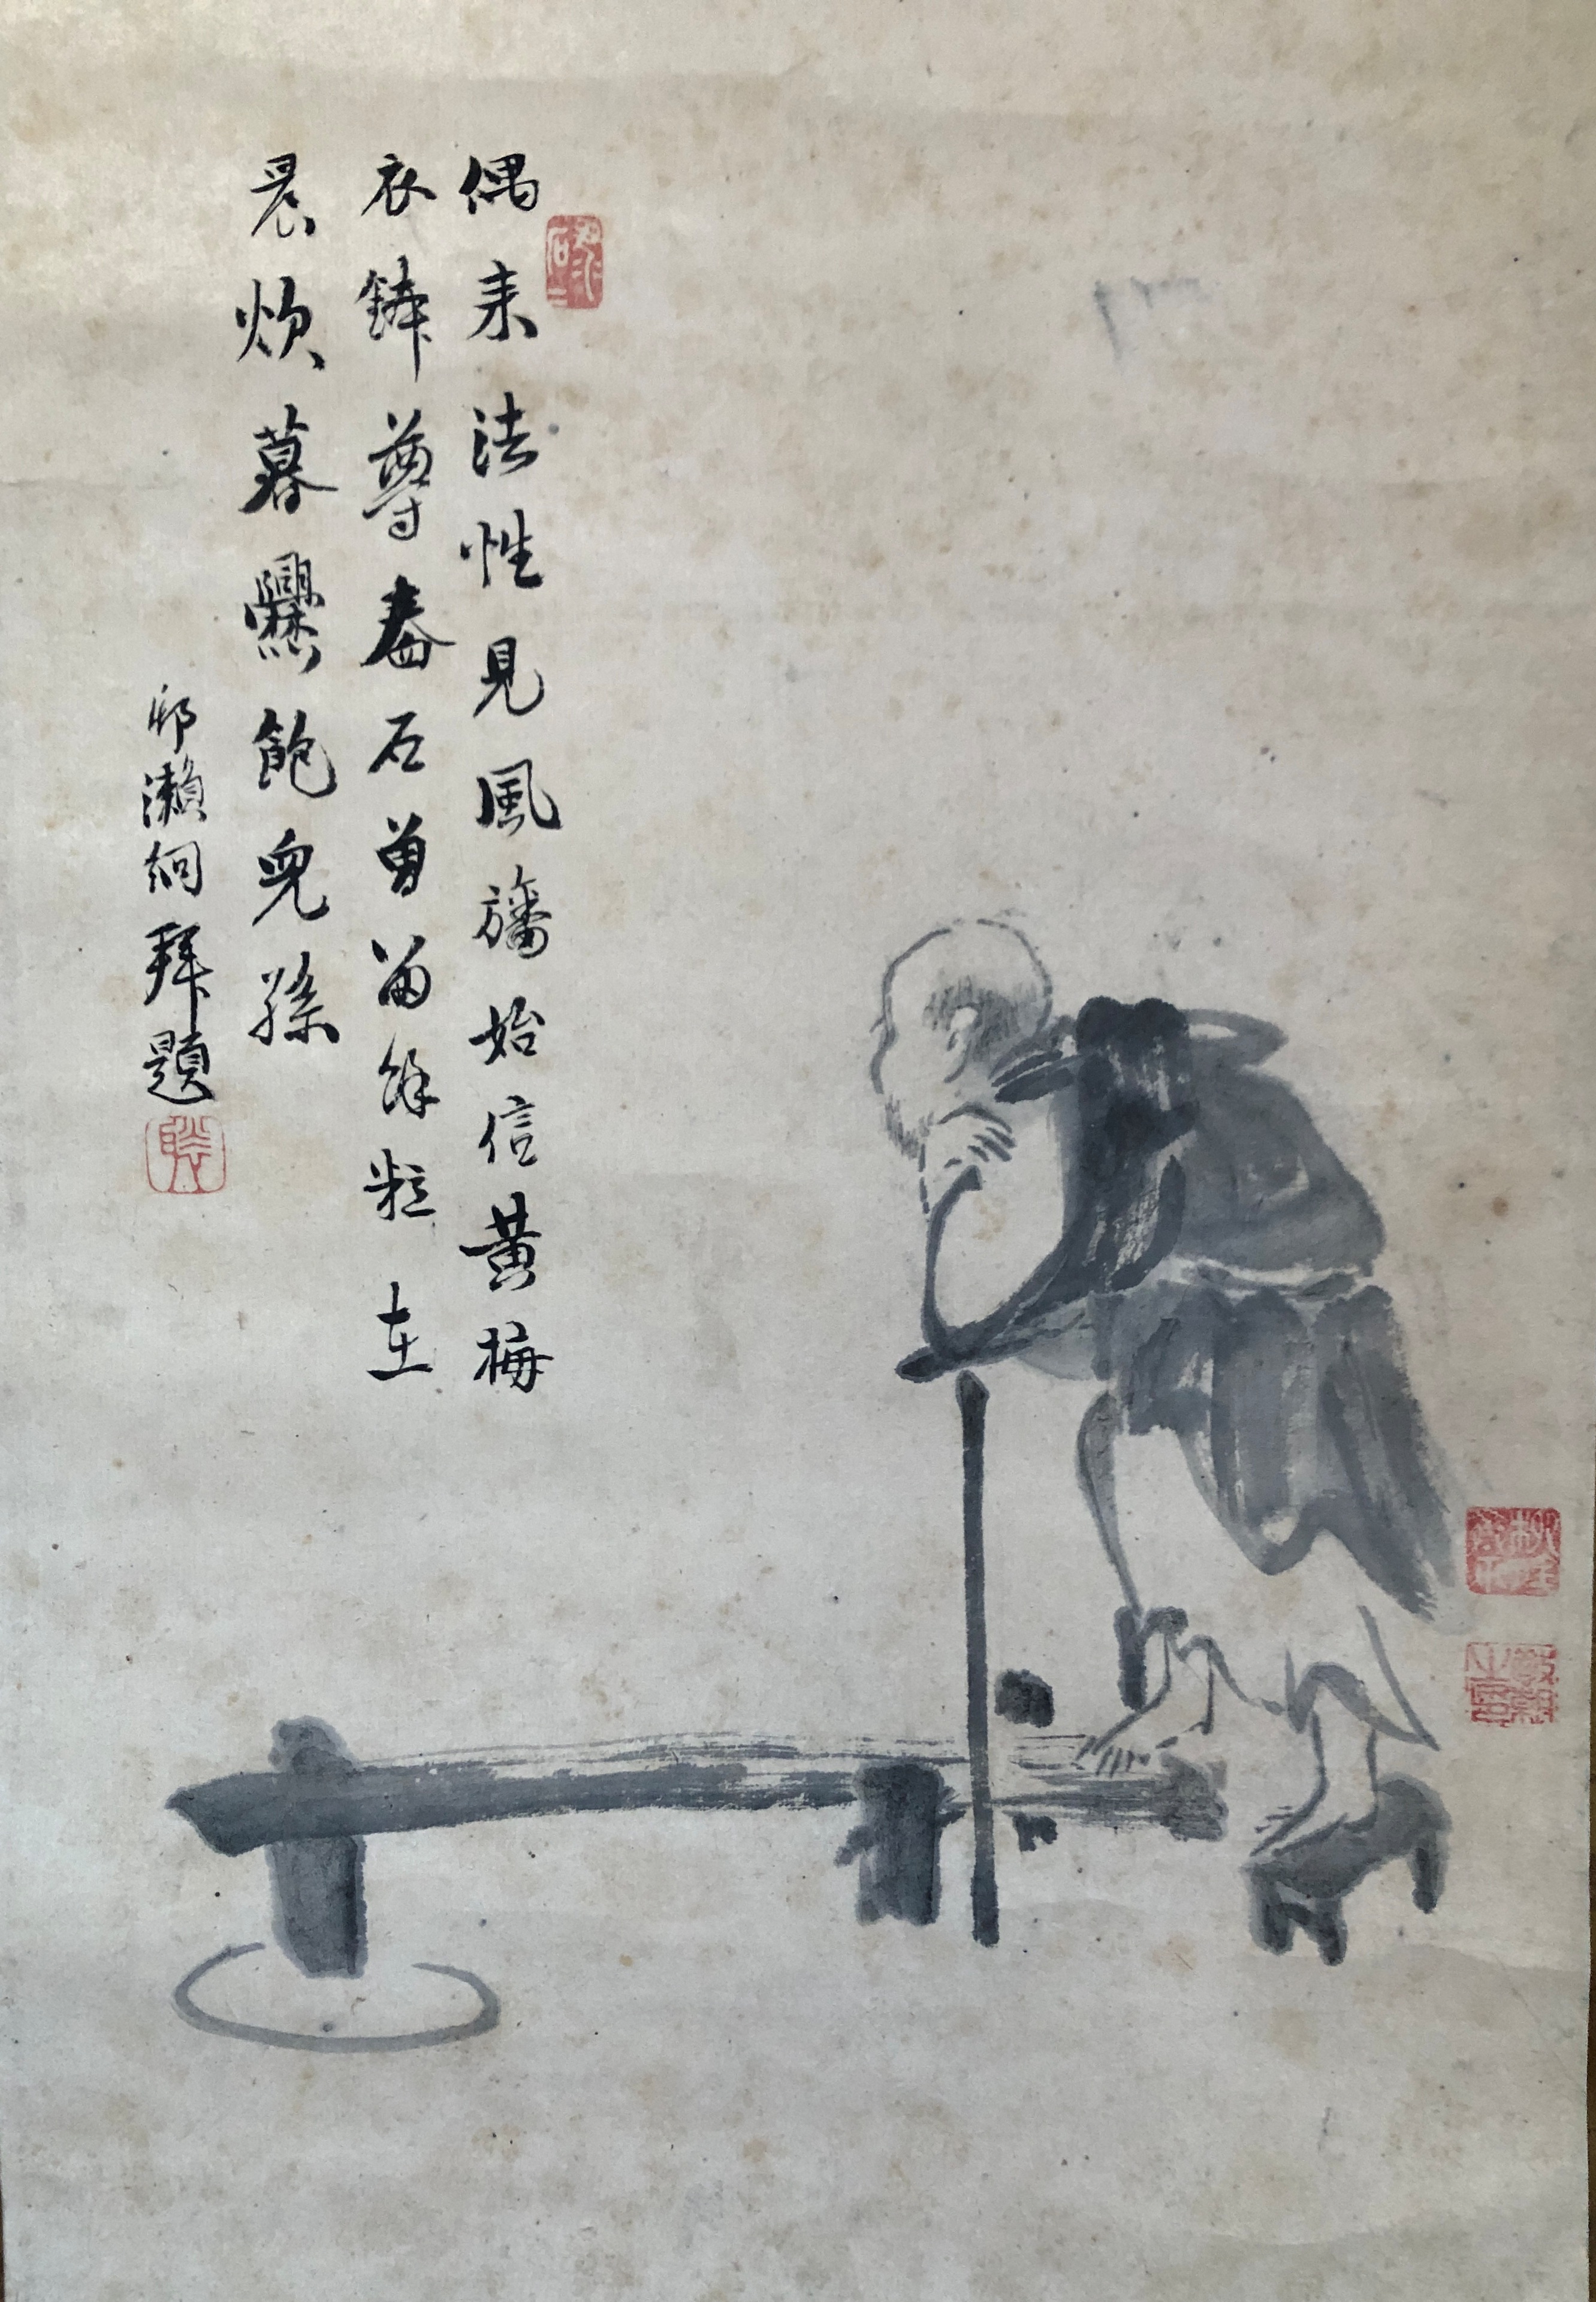 偶来法性見風旛始信黃梅
衣鉢尊舂石曽畱餘粒在
晨炊暮爨飽兒孫
瀬絅拜題